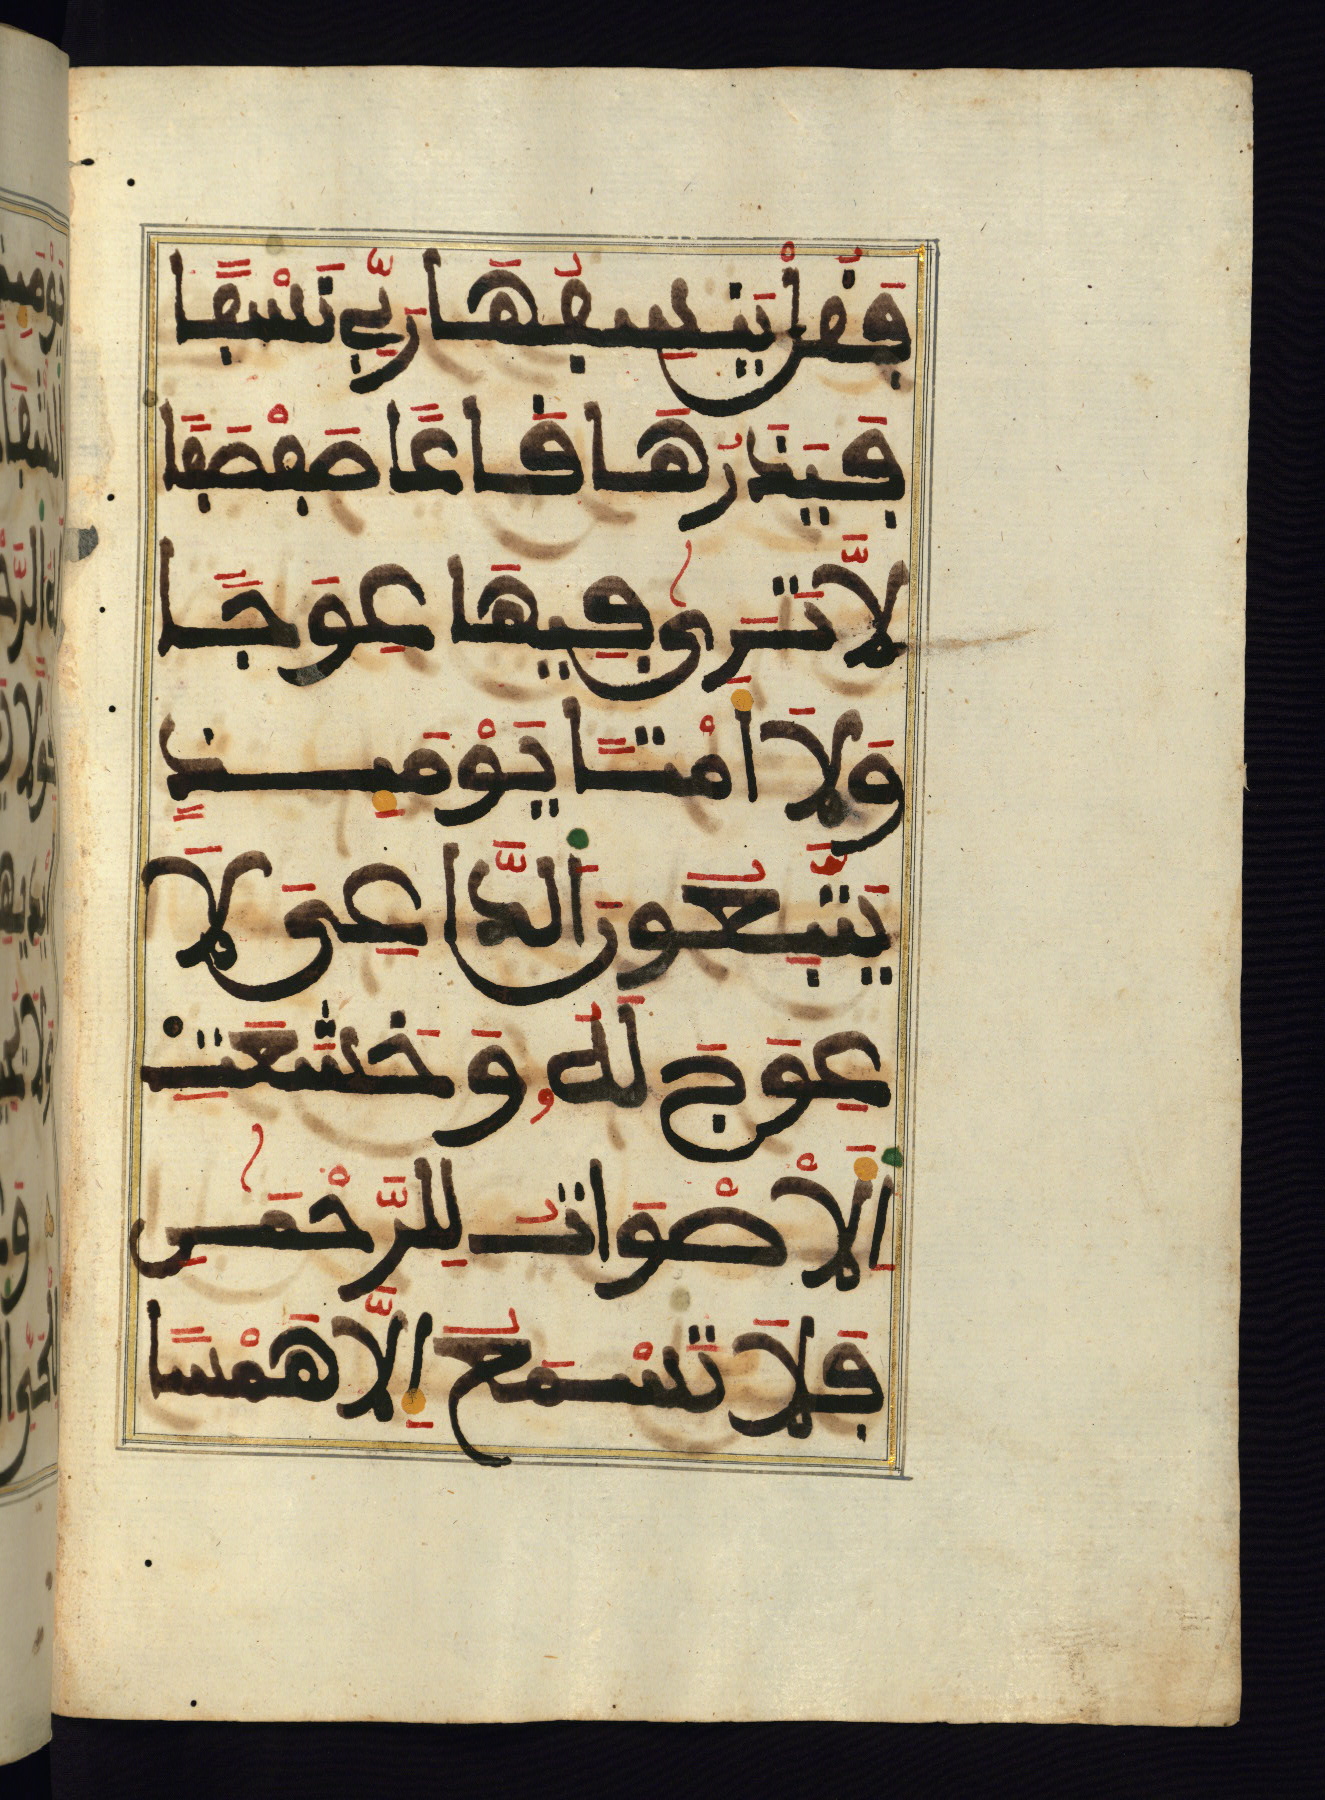 فَقُلْ يَنسِفُهَا رَبِّي نَسْفًا
فَيَذَرُهَا قَاعًا صَفْصَفًا
لَّا تَرَىٰ فِيهَا عِوَجًا
وَلَا أَمْتًا يَوْمَئِذٍ
يَتَّبِعُونَ الدَّاعِيَ لَا
عِوَجَ لَهُۥ وَخَشَعَتِ
الْأَصْوَاتُ لِلرَّحْمَٰنِ
فَلَا تَسْمَعُ إِلَّا هَمْسًا